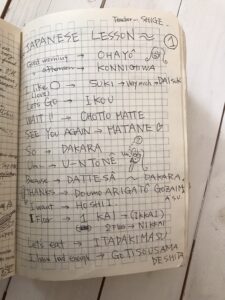 Teacher - SHIGE -
JAPANESE LESSON 1
Good morning → OHAYŌ
afternoon → KONNICHIWA
I like → SUKI → Very much → DAISUK
(love)
Let's Go → IKOU
WAIT! → CHOTTO MATTE
SEE YOU AGAIN → MATANE
So → DAKARA
Um.. → U~NTONE
Because → DATTESA ~ DAKARA
THANKS → DOUMO ARIGATŌ GOZAIM
ASU
I want → HOSHII
1 Floor → 1 KAI → (IKKAI)
2 Floo → NIKKAI
Let's eat → ITADAKIMASU
I have had enough → GOTISOUSAMA
DESHITA